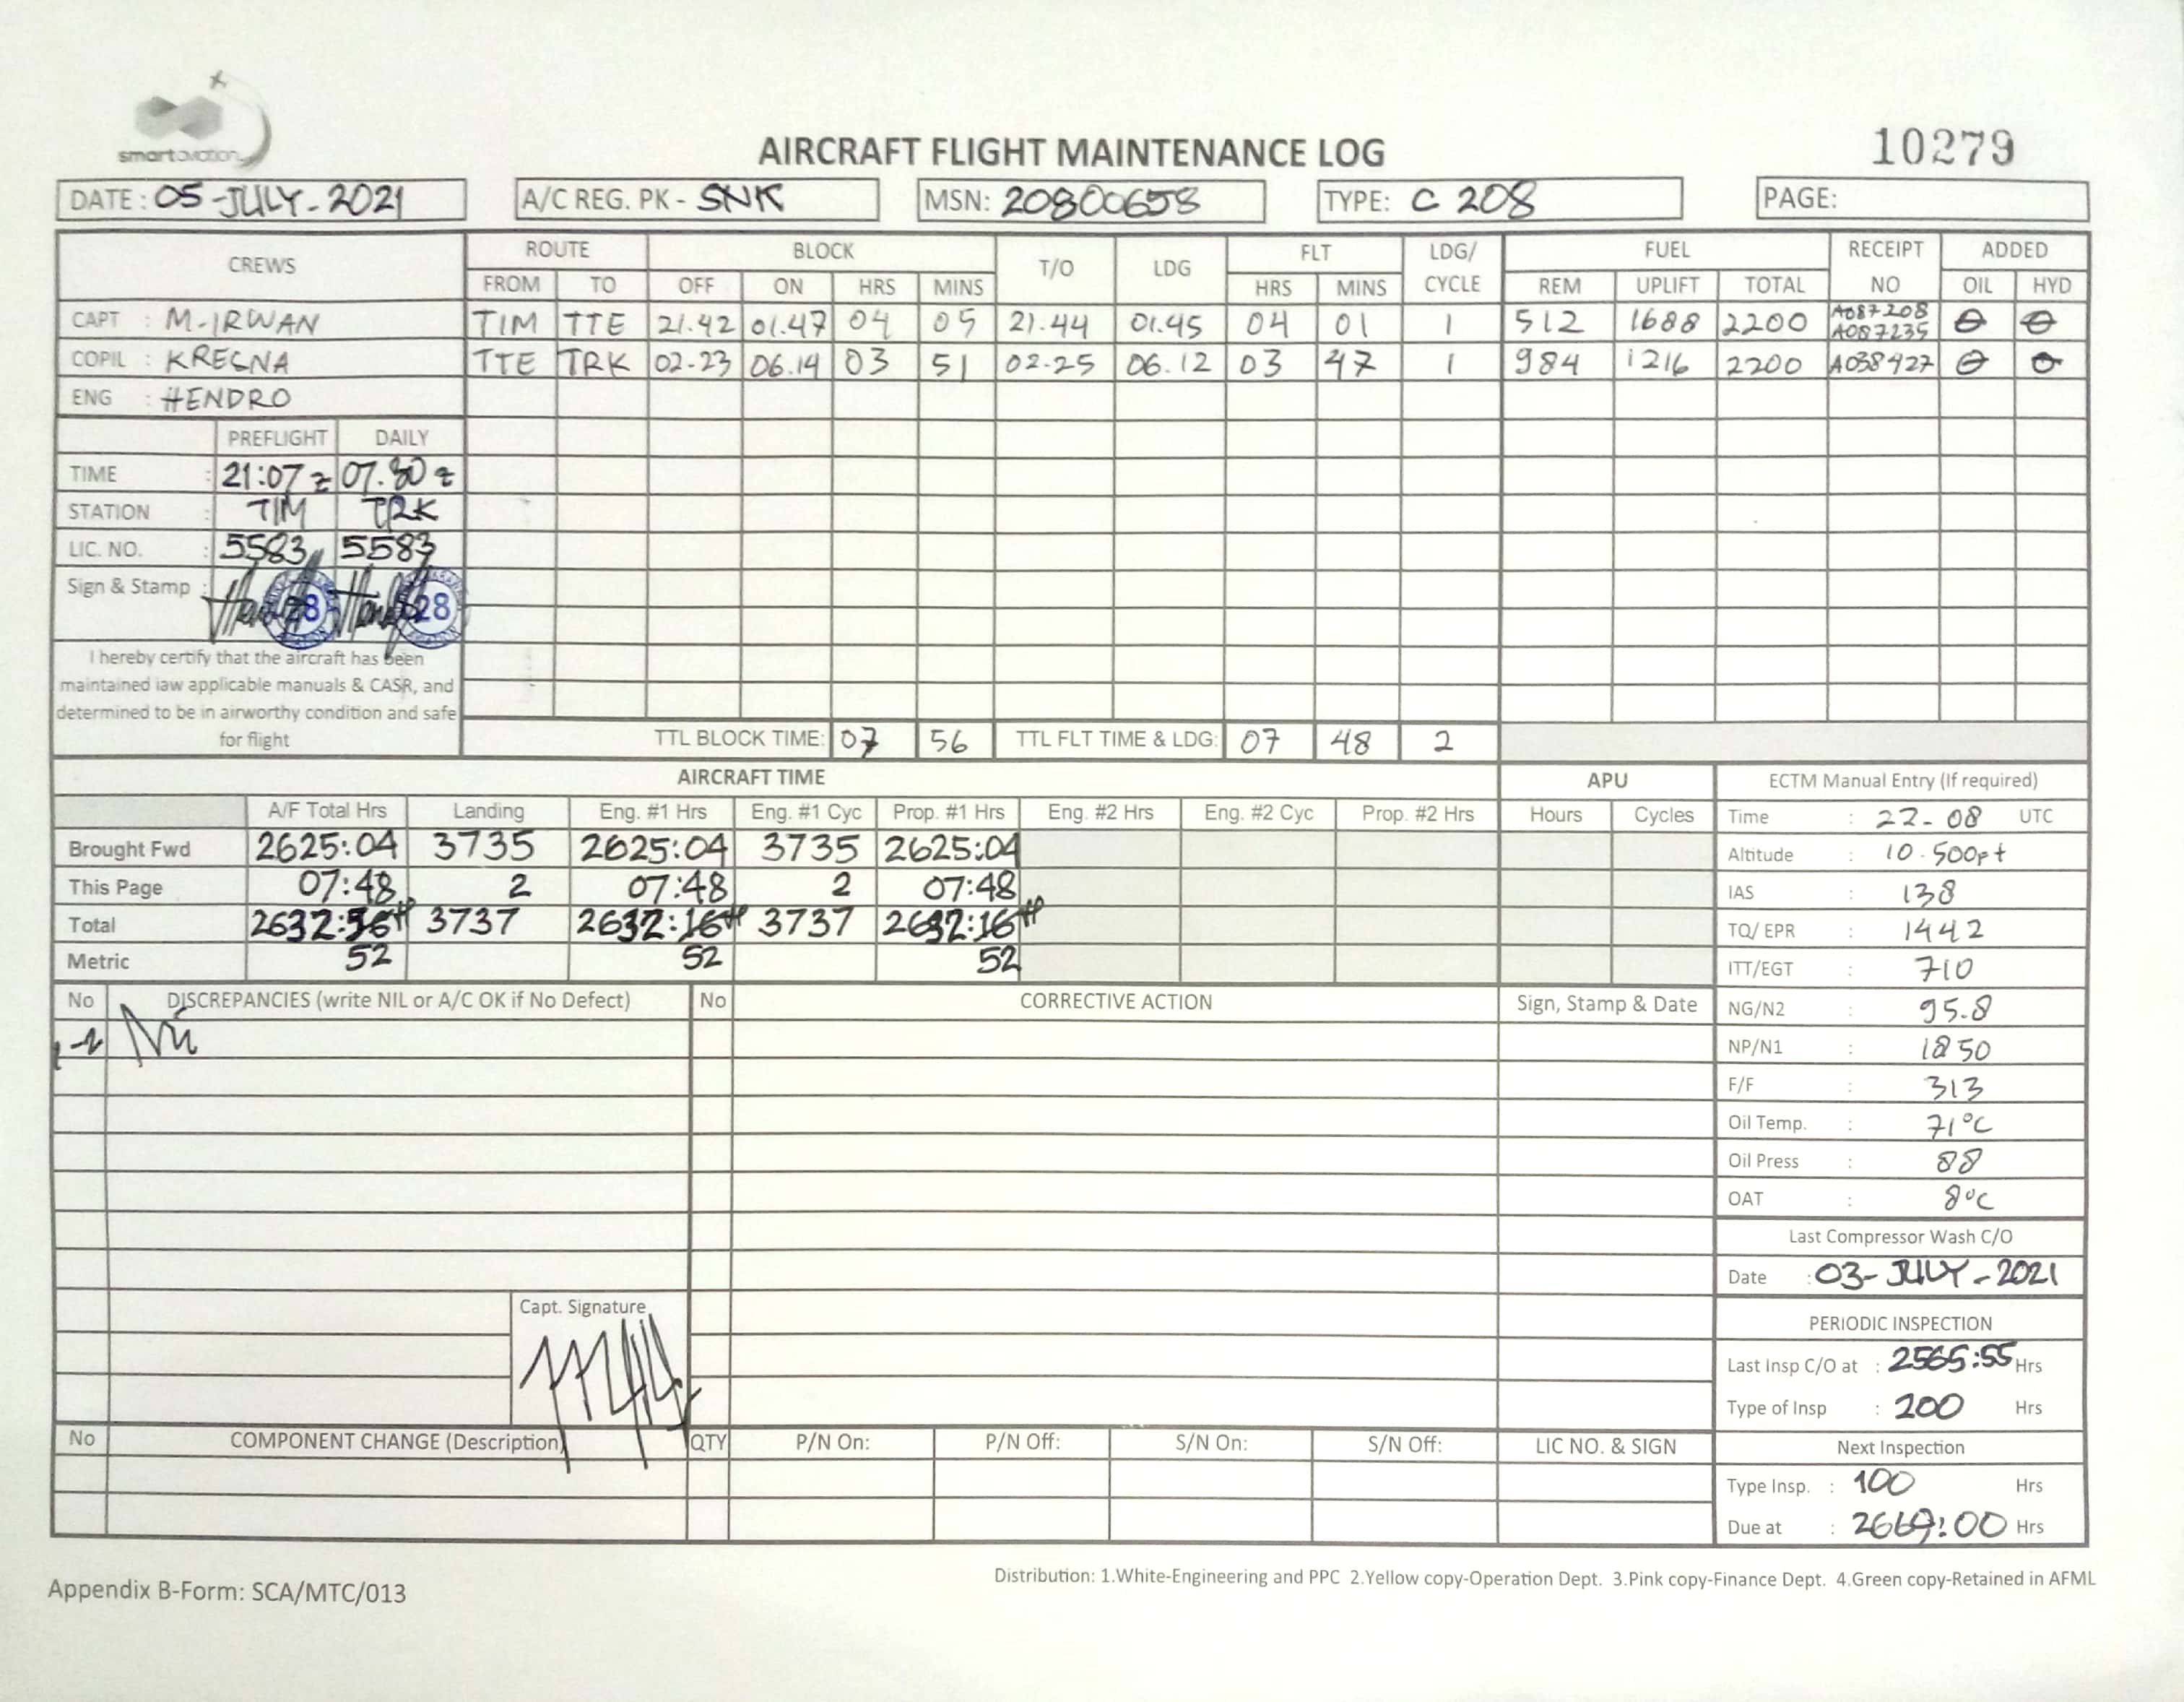 smartaviation
AIRCRAFT FLIGHT MAINTENANCE LOG
10279
DATE : 05-JULY-2021 A/C REG. PK - SNK MSN: 20800658 TYPE: C 208 PAGE:
CREWS ROUTE BLOCK T/O LDG FLT LDG/ CYCLE FUEL RECEIPT NO ADDED
FROM TO OFF ON HRS MINS HRS MINS REM UPLIFT TOTAL OIL HYD
CAPT : M-IRWAN TIM TTE 21.42 01.47 04 05 21.44 01.45 04 01 1 512 1688 2200 A087208 A087235 0 0
COPIL : KRESNA TTE TRK 02-23 06.14 03 51 02-25 06.12 03 47 1 984 1216 2200 A038427 0 0
ENG : HENDRO
PREFLIGHT DAILY
TIME : 21:07 z 07.30 z
STATION : TIM TRK
LIC. NO. : 5583 5583
Sign & Stamp : 28 28
I hereby certify that the aircraft has been
maintained iaw applicable manuals & CASR, and
determined to be in airworthy condition and safe
for flight
TTL BLOCK TIME: 07 56 TTL FLT TIME & LDG: 07 48 2
AIRCRAFT TIME APU ECTM Manual Entry (If required)
A/F Total Hrs Landing Eng. #1 Hrs Eng. #1 Cyc Prop. #1 Hrs Eng. #2 Hrs Eng. #2 Cyc Prop. #2 Hrs Hours Cycles
Brought Fwd 2625:04 3735 2625:04 3735 2625:04
This Page 07:48 2 07:48 2 07:48
Total 2632: 3737 2632:16 3737 2632:16
Metric 52 52 52
Time : 22-08 UTC
Altitude : 10.500ft
IAS : 138
TQ/ EPR : 1442
ITT/EGT : 710
NG/N2 : 95.8
NP/N1 : 1850
F/F : 313
Oil Temp. : 71°C
Oil Press : 88
OAT : 8°C
Last Compressor Wash C/O
Date : 03-JULY-2021
PERIODIC INSPECTION
Last Insp C/O at : 2565:55 Hrs
Type of Insp : 200 Hrs
Next Inspection
Type Insp. : 100 Hrs
Due at : 2669:00 Hrs
No DISCREPANCIES (write NIL or A/C OK if No Defect) No CORRECTIVE ACTION Sign, Stamp & Date
1-2 Nil
Capt. Signature
No COMPONENT CHANGE (Description) QTY P/N On: P/N Off: S/N On: S/N Off: LIC NO. & SIGN
Distribution: 1.White-Engineering and PPC 2.Yellow copy-Operation Dept. 3.Pink copy-Finance Dept. 4.Green copy-Retained in AFML
Appendix B-Form: SCA/MTC/013